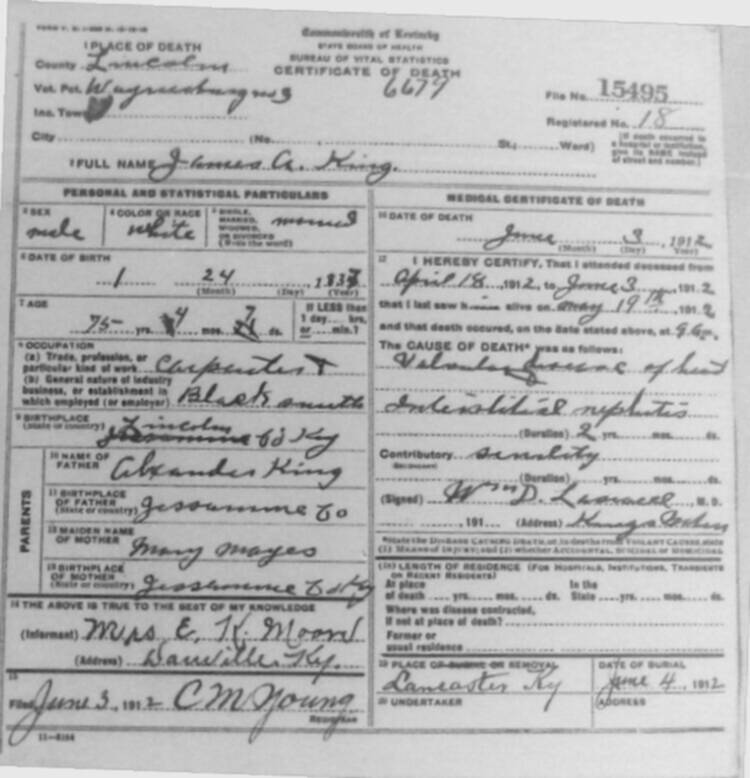 Commonwealth of Kentucky
STATE BOARD OF HEALTH
BUREAU OF VITAL STATISTICS
CERTIFICATE OF DEATH
1 PLACE OF DEATH
County Lincoln
Vot. Pct. Waynesburg no 3
6677
File No. 15495
Inc. Town
Registered No. 18
City (No. St.; Ward)
(If death occurred in a hospital or institution, give its NAME instead of street and number.)
2 FULL NAME James A. King.
PERSONAL AND STATISTICAL PARTICULARS
3 SEX
male
4 COLOR OR RACE
white
5 SINGLE, MARRIED, WIDOWED, OR DIVORCED (Write the word)
6 DATE OF BIRTH
1 24 1837
(Month) (Day) (Year)
7 AGE
75 yrs. 4 mos. ds.
If LESS than 1 day.... hrs. or.... min.?
8 OCCUPATION
(a) Trade, profession, or particular kind of work Carpenter +
(b) General nature of industry business, or establishment in which employed (or employer) Black smith
9 BIRTHPLACE
(State or country) Lincoln
Jessamine Co Ky
PARENTS
10 NAME OF FATHER
Alxander King
11 BIRTHPLACE OF FATHER
(State or country) Jessamine Co
12 MAIDEN NAME OF MOTHER
Mary Mayes
13 BIRTHPLACE OF MOTHER
(State or country) Jessamine Co Ky
14 THE ABOVE IS TRUE TO THE BEST OF MY KNOWLEDGE
(Informant) Mrs E. K. Moore
(Address) Danville, Ky.
15
Filed June 3, 1912 C M Young
REGISTRAR
11-5184
MEDICAL CERTIFICATE OF DEATH
16 DATE OF DEATH
June 3, 1912
(Month) (Day) (Year)
17 I HEREBY CERTIFY, That I attended deceased from
April 18, 1912, to June 3, 1912
that I last saw him alive on May 19th, 1912
and that death occured, on the date stated above, at
The CAUSE OF DEATH* was as follows:
Valvular disease of heart
Interstitial nephritis
(Duration) 2 yrs. mos. ds.
Contributory senility
SECONDARY
(Duration) yrs. mos. ds.
(Signed) Wm D. M. D.
191 (Address) Kings
*State the DISEASE CAUSING DEATH, or, in deaths from VIOLENT CAUSES, state
(1) MEANS OF INJURY; and (2) whether ACCIDENTAL, SUICIDAL OR HOMICIDAL
18 LENGTH OF RESIDENCE (FOR HOSPITALS, INSTITUTIONS, TRANSIENTS OR RECENT RESIDENTS)
At place of death yrs. mos. ds. In the State yrs. mos. ds.
Where was disease contracted,
if not at place of death?
Former or
usual residence
19 PLACE OF BURIAL OR REMOVAL
Lancaster Ky
DATE OF BURIAL
June 4, 1912
20 UNDERTAKER
ADDRESS